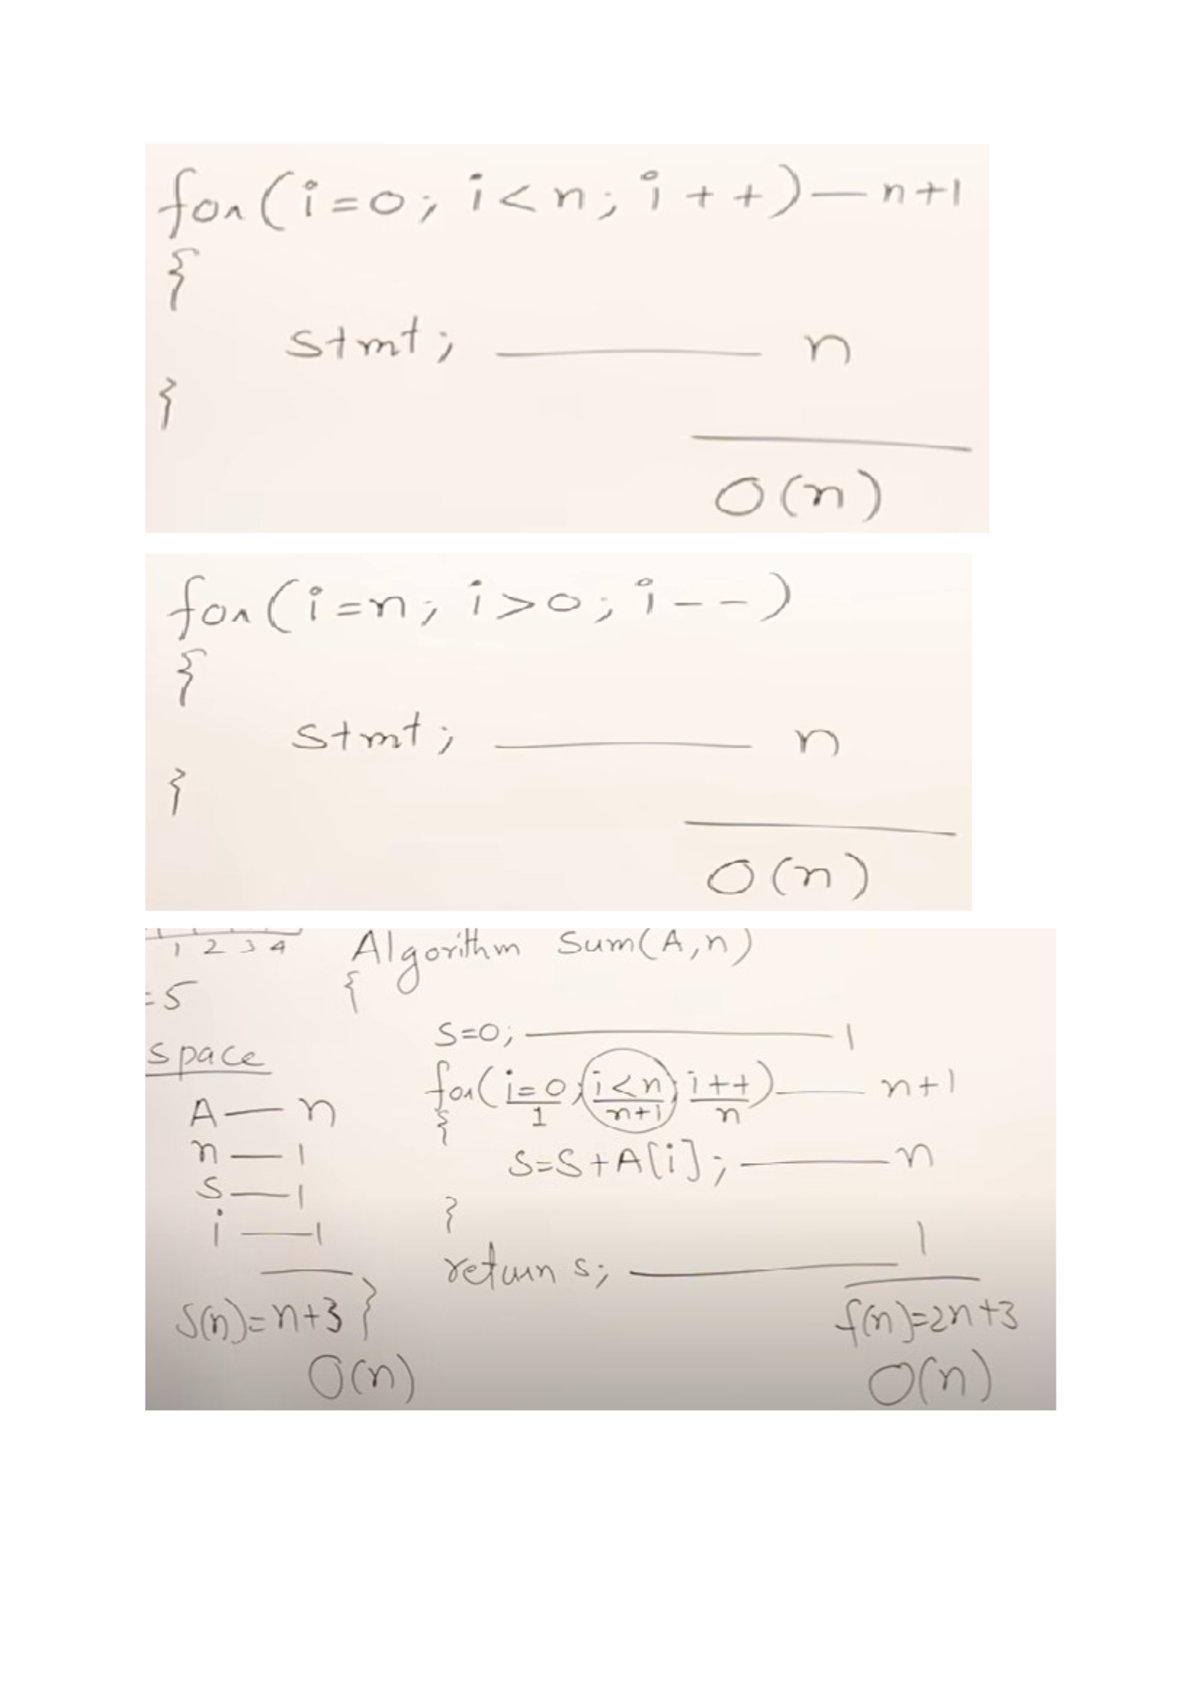 for(i=0; i<n; i++)—n+1
{
stmt; ——— n
}
O(n)
for(i=n; i>0; i--)
{
stmt; ——— n
}
O(n)
1 2 3 4
=5
space
A — n
n — 1
s — 1
i — 1
S(n)=n+3
O(n)
Algorithm Sum(A,n)
{
s=0; ——— 1
for(i=0; i<n; i++) —— n+1
1 n+1 n
{
s=s+A[i]; ——— n
}
return s; ——— 1
}
f(n)=2n+3
O(n)